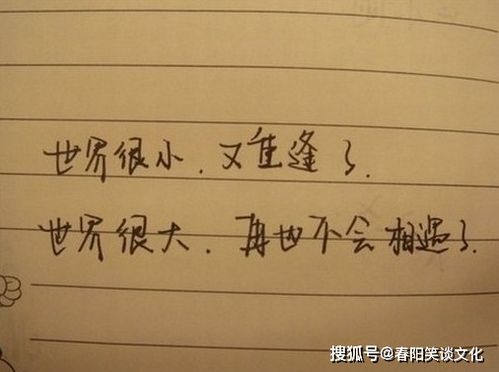 世界很小.又重逢了.
世界很大.再也不会相遇了.
搜狐号@春阳笑谈文化